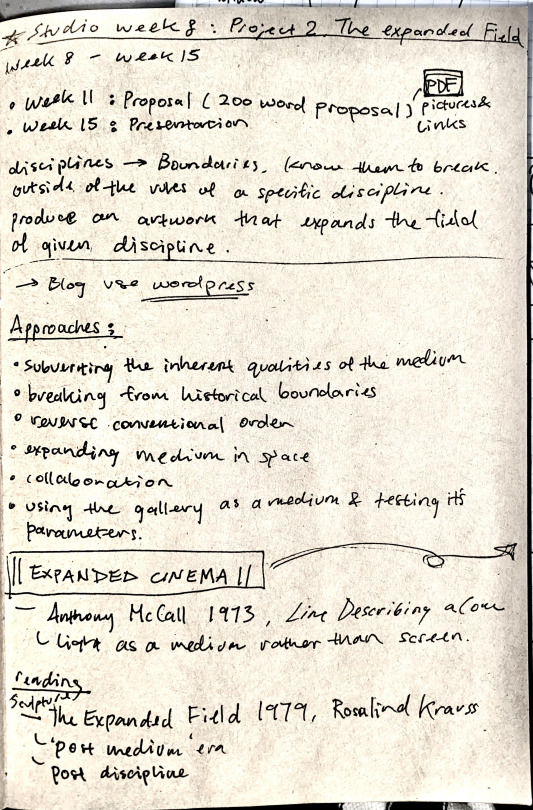 * Studio week 8 : Project 2. The expanded Field
week 8 - week 15
• week 11 : Proposal ( 200 word proposal )
PDF
pictures &
links
• week 15 : Presentation
disciplines → Boundaries, know them to break.
outside of the rules of a specific discipline.
produce an artwork that expands the field
of given discipline.
→ Blog use wordpress
Approaches :
• subverting the inherent qualities of the medium
• breaking from historical boundaries
• reverse conventional order
• expanding medium in space
• collaboration
• using the gallery as a medium & testing its
parameters.
|| EXPANDED CINEMA ||
— Anthony McCall 1973, Line Describing a Cone
light as a medium rather than screen.
reading
Sculpture
— The Expanded Field 1979, Rosalind Krauss
'post medium' era
post discipline